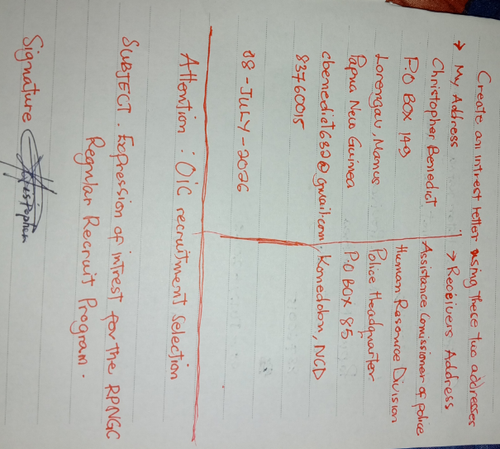 Create an intrest letter using these two addresses
→ My Address
Christopher Benedict
P.O BOX 149
Lorengau, Manus
Papua New Guinea
cbenedict682@gmail.com
83760015
08-JULY-2026
→ Receivers Address
Assistance Comissioner of police
Human Resource Division
Police Headquarter
P.O BOX 85
Konedobu, NCD
Attention : OIC recruitment selection
SUBJECT. Expression of intrest for the RPNGC
Regular Recruit Program.
Signature